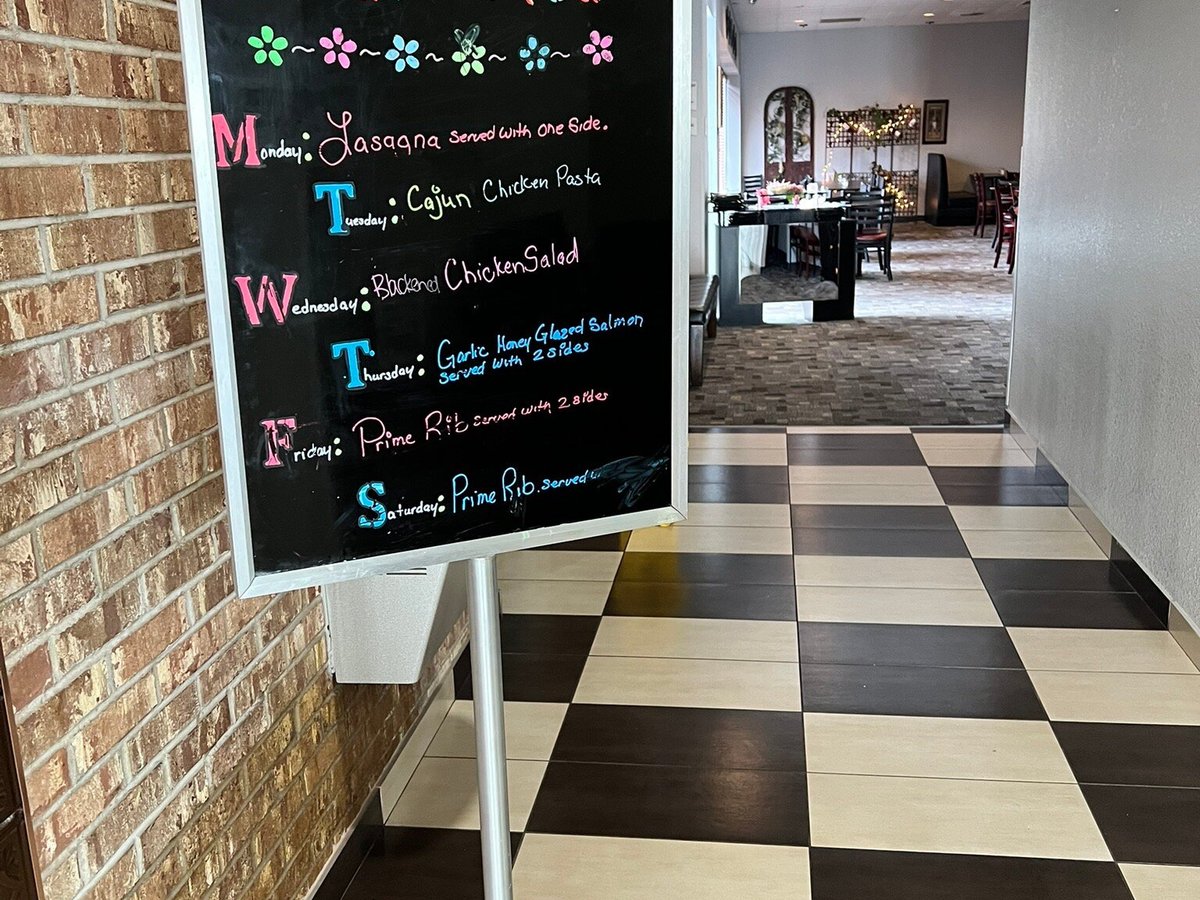 Monday: Lasagna served with one side.
Tuesday: Cajun Chicken Pasta
Wednesday: Blackened Chicken Salad
Thursday: Garlic Honey Glazed Salmon
served with 2 sides
Friday: Prime Rib served with 2 sides
Saturday: Prime Rib. served